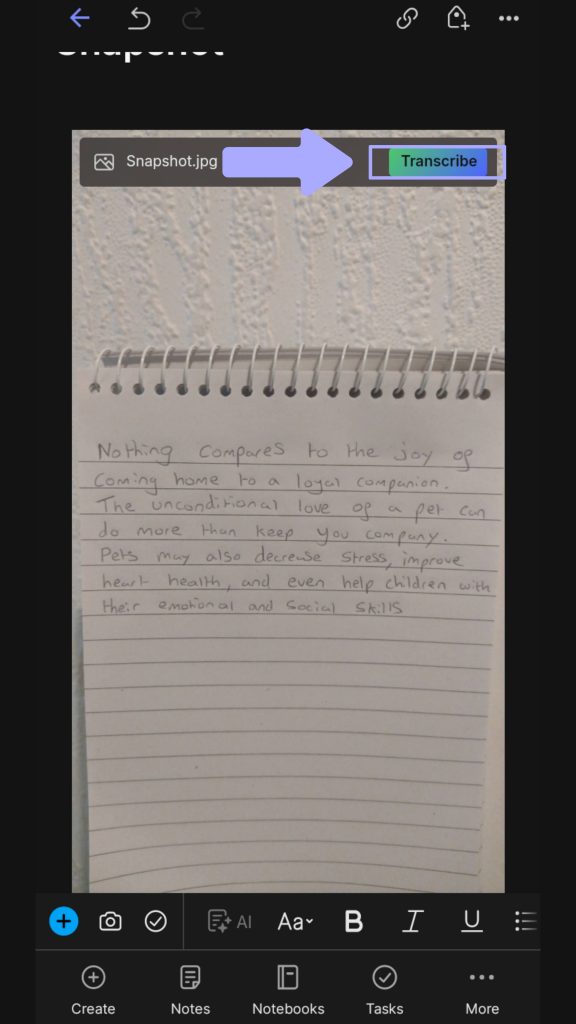 Snapshot
Snapshot.jpg
Transcribe
Nothing compares to the joy of
Coming home to a loyal companion.
The unconditional love of a pet can
do more than keep you company.
Pets may also decrease stress, improve
heart health, and even help children with
their emotional and social skills
AI Aa B I U
Create Notes Notebooks Tasks More